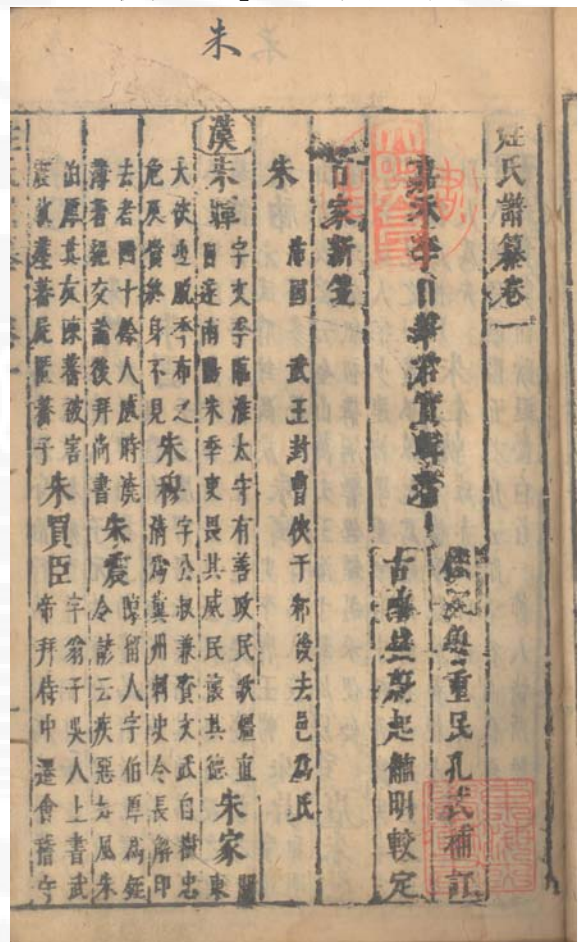 朱
姓氏譜纂卷一
嘉禾李日華君實輯著
魯重民孔式補訂
蔚起龍明較定
百家新箋
朱
沛國 武王封曹俠于邾後去邑為氏
漢 朱暉 字文季臨淮太守有善政民歌彊直
自遂南陽朱季吏畏其威民懷其德 朱家 東
大俠也脫季布之
危及貴終身不見 朱穆 字公叔兼資文武自徵忠
清為冀州刺史令長解印
去者四十餘人感時澆
薄著絕交論後拜尚書 朱震 陳留人字伯厚為銍
令諺云疾惡如風朱
伯厚其友陳蕃被害
震收葬蕃屍匿蕃子 朱買臣 字翁子吳人上書武
帝拜侍中遷會稽守